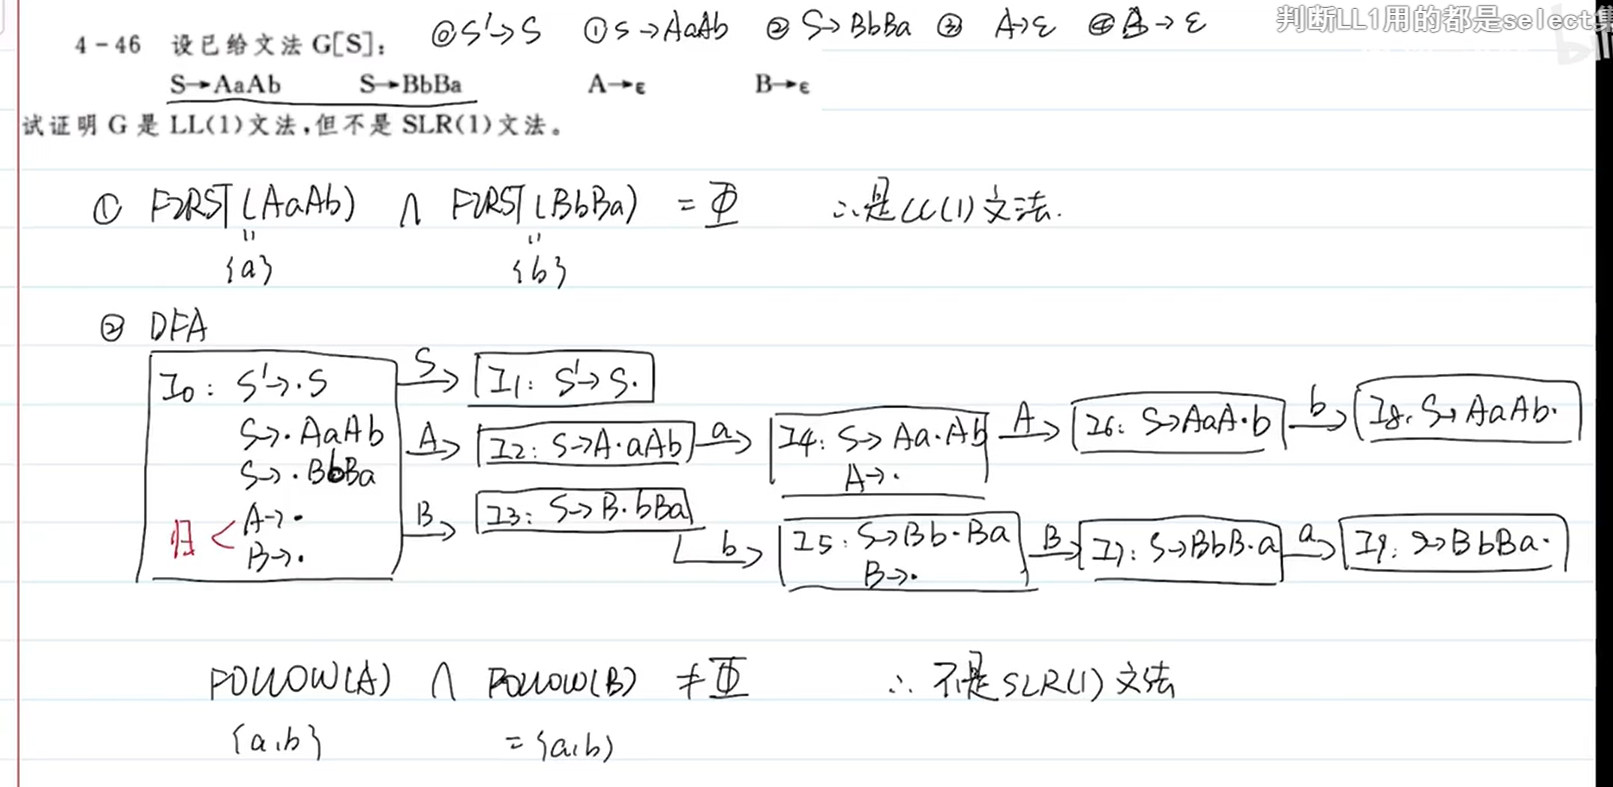 判断LL1用的都是select集
4-46 设已给文法 G[S]: ⓪S'→S ①S→AaAb ②S→BbBa ③ A→ε ④B→ε
S→AaAb S→BbBa A→ε B→ε
试证明 G 是 LL(1)文法,但不是 SLR(1)文法。
① FIRST(AaAb) ∩ FIRST(BbBa) = Φ ∴是LL(1)文法.
{a} {b}
② DFA
I0: S'→.S
S→.AaAb
S→.BbBa
归 < A→.
B→.
S
I1: S'→S.
A
I2: S→A.aAb
a
I4: S→Aa.Ab
A→.
A
I6: S→AaA.b
b
I8: S→AaAb.
B
I3: S→B.bBa
b
I5: S→Bb.Ba
B→.
B
I7: S→BbB.a
a
I9: S→BbBa.
FOLLOW(A) ∩ FOLLOW(B) ≠Φ ∴不是SLR(1)文法
{a,b} ={a,b}